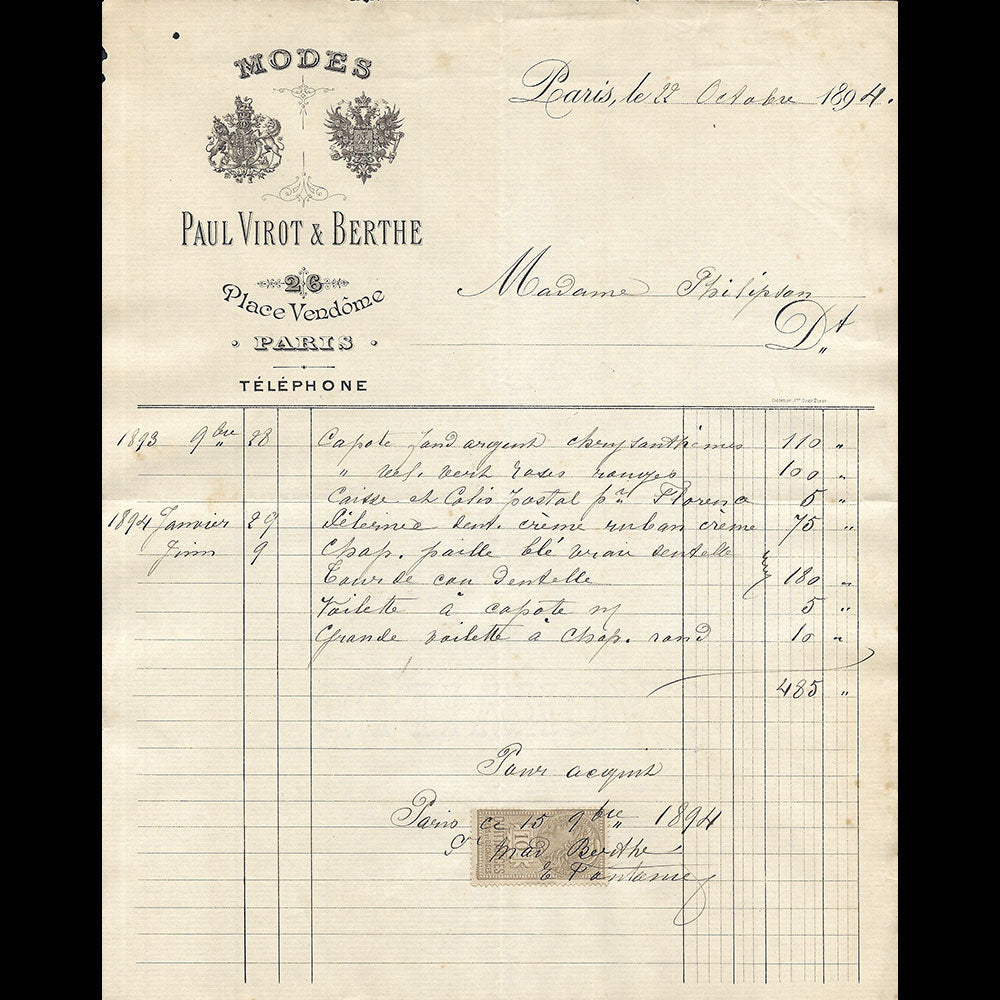 MODES
Paris, le 22 Octobre 1894.
PAUL VIROT & BERTHE
26
Place Vendôme
PARIS
TÉLÉPHONE
Madame Philipson
Dt
1893 9bre 28 Capote fond argent chrysanthèmes 110 "
" vel. vert roses rouges 100 "
Caisse et Colis postal pr Florence 5 "
1894 Janvier 29 Pèlerine dent. crème ruban crème 75 "
Juin 9 Chap. paille blé vraie dentelle
Tour de cou dentelle 180 "
Voilette à capote 5 "
Grande voilette à chap. rond 10 "
485 "
Pour acquit
Paris ce 15 9bre 1894
Pr Berthe
10c